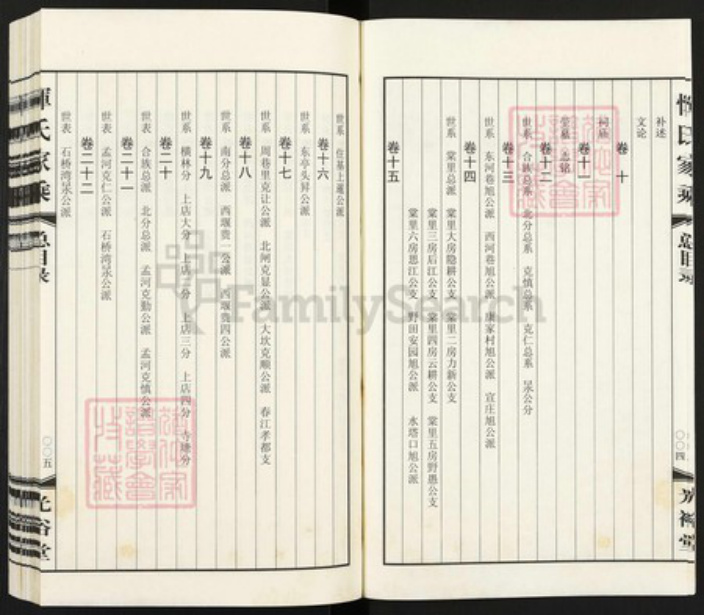 恽氏家乘
总目录
〇〇四
光裕堂
补述
文论
卷十
祠庙
茔墓 志铭
卷十一
卷十二
世系 合族总系 北分总系 克慎总系 克仁总系 杲公分
卷十三
世系 东河巷旭公派 西河巷旭公派 唐家村旭公派 宣庄旭公派
卷十四
世系 棠里总派 棠里大房隐耕公支 棠里二房力新公支
棠里三房后江公支 棠里四房云耕公支 棠里五房野愚公支
棠里六房思江公支 野田安园旭公派 水塔口旭公派
卷十五
世系 住基上遹公派
卷十六
世系 东亭头昇公派
卷十七
世系 周巷里克让公派 北闸克显公派 大坎克顺公派 春江孝都支
卷十八
世系 南分总派 西堰贵一公派 西堰贵四公派
卷十九
世系 横林分 上店大分 上店二分 上店三分 上店四分 寺塘分
卷二十
世表 合族总派 北分总派 孟河克勤公派 孟河克慎公派
卷二十一
世表 孟河克仁公派 石桥湾杲公派
卷二十二
世表 石桥湾杲公派
恽氏家乘
总目录
〇〇五
光裕堂
FamilySearch